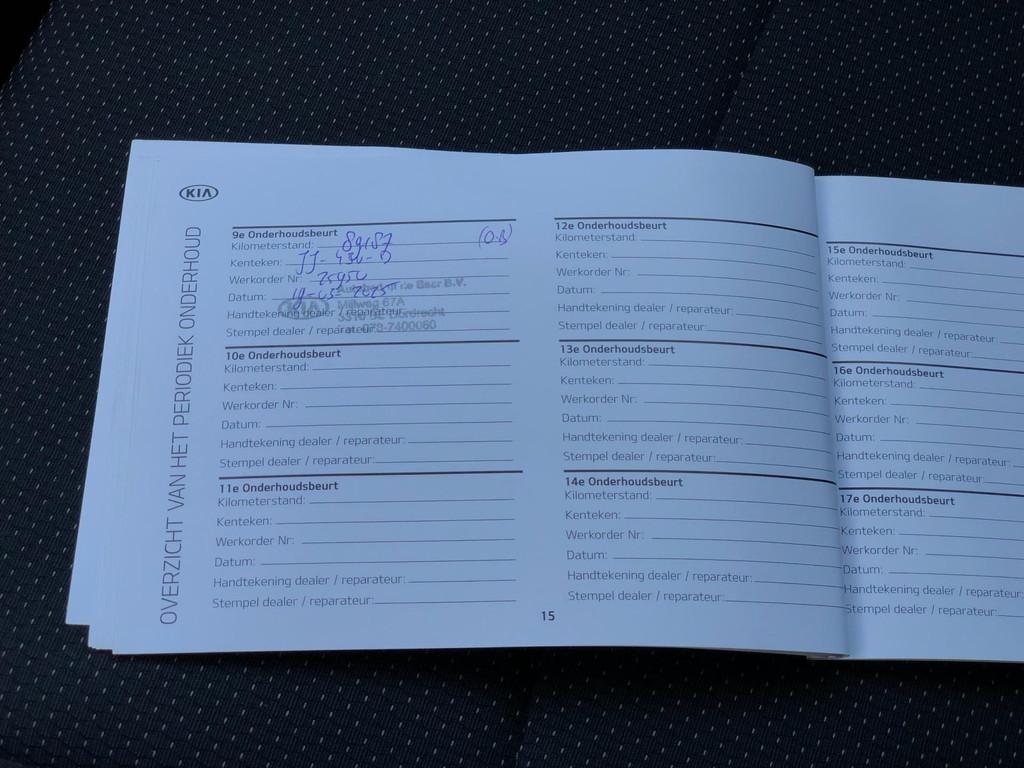 KIA
OVERZICHT VAN HET PERIODIEK ONDERHOUD
9e Onderhoudsbeurt (O.B)
Kilometerstand: 89187
Kenteken:
Werkorder Nr:
Datum: 19-05-2025
Handtekening dealer / reparateur:
Stempel dealer / reparateur:
KIA
de Beer B.V.
Mijlweg 67A
Dordrecht
078-7400060
10e Onderhoudsbeurt
Kilometerstand:
Kenteken:
Werkorder Nr:
Datum:
Handtekening dealer / reparateur:
Stempel dealer / reparateur:
11e Onderhoudsbeurt
Kilometerstand:
Kenteken:
Werkorder Nr:
Datum:
Handtekening dealer / reparateur:
Stempel dealer / reparateur:
12e Onderhoudsbeurt
Kilometerstand:
Kenteken:
Werkorder Nr:
Datum:
Handtekening dealer / reparateur:
Stempel dealer / reparateur:
13e Onderhoudsbeurt
Kilometerstand:
Kenteken:
Werkorder Nr:
Datum:
Handtekening dealer / reparateur:
Stempel dealer / reparateur:
14e Onderhoudsbeurt
Kilometerstand:
Kenteken:
Werkorder Nr:
Datum:
Handtekening dealer / reparateur:
Stempel dealer / reparateur:
15
15e Onderhoudsbeurt
Kilometerstand:
Kenteken:
Werkorder Nr:
Datum:
Handtekening dealer / reparateur:
Stempel dealer / reparateur:
16e Onderhoudsbeurt
Kilometerstand:
Kenteken:
Werkorder Nr:
Datum:
Handtekening dealer / reparateur:
Stempel dealer / reparateur:
17e Onderhoudsbeurt
Kilometerstand:
Kenteken:
Werkorder Nr:
Datum:
Handtekening dealer / reparateur:
Stempel dealer / reparateur: